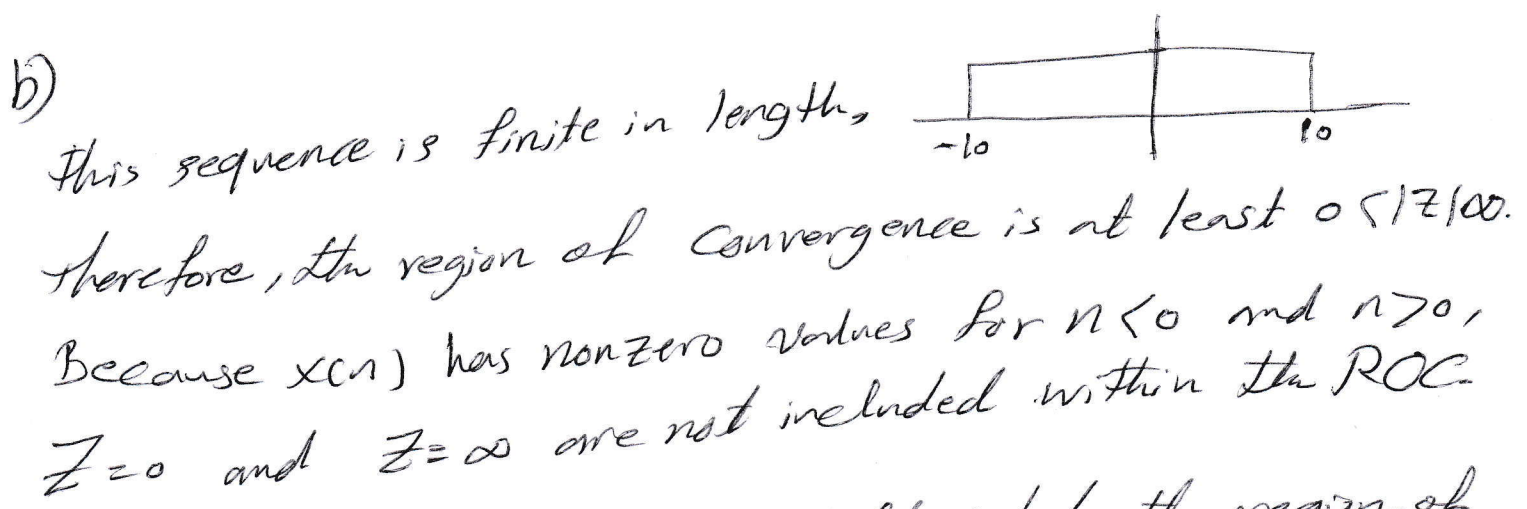 b)
This sequence is finite in length,
-10 10
therefore, the region of convergence is at least 0<|Z|∞.
Because x(n) has nonzero values for n<0 and n>0,
Z=0 and Z=∞ are not included within the ROC.
the region of